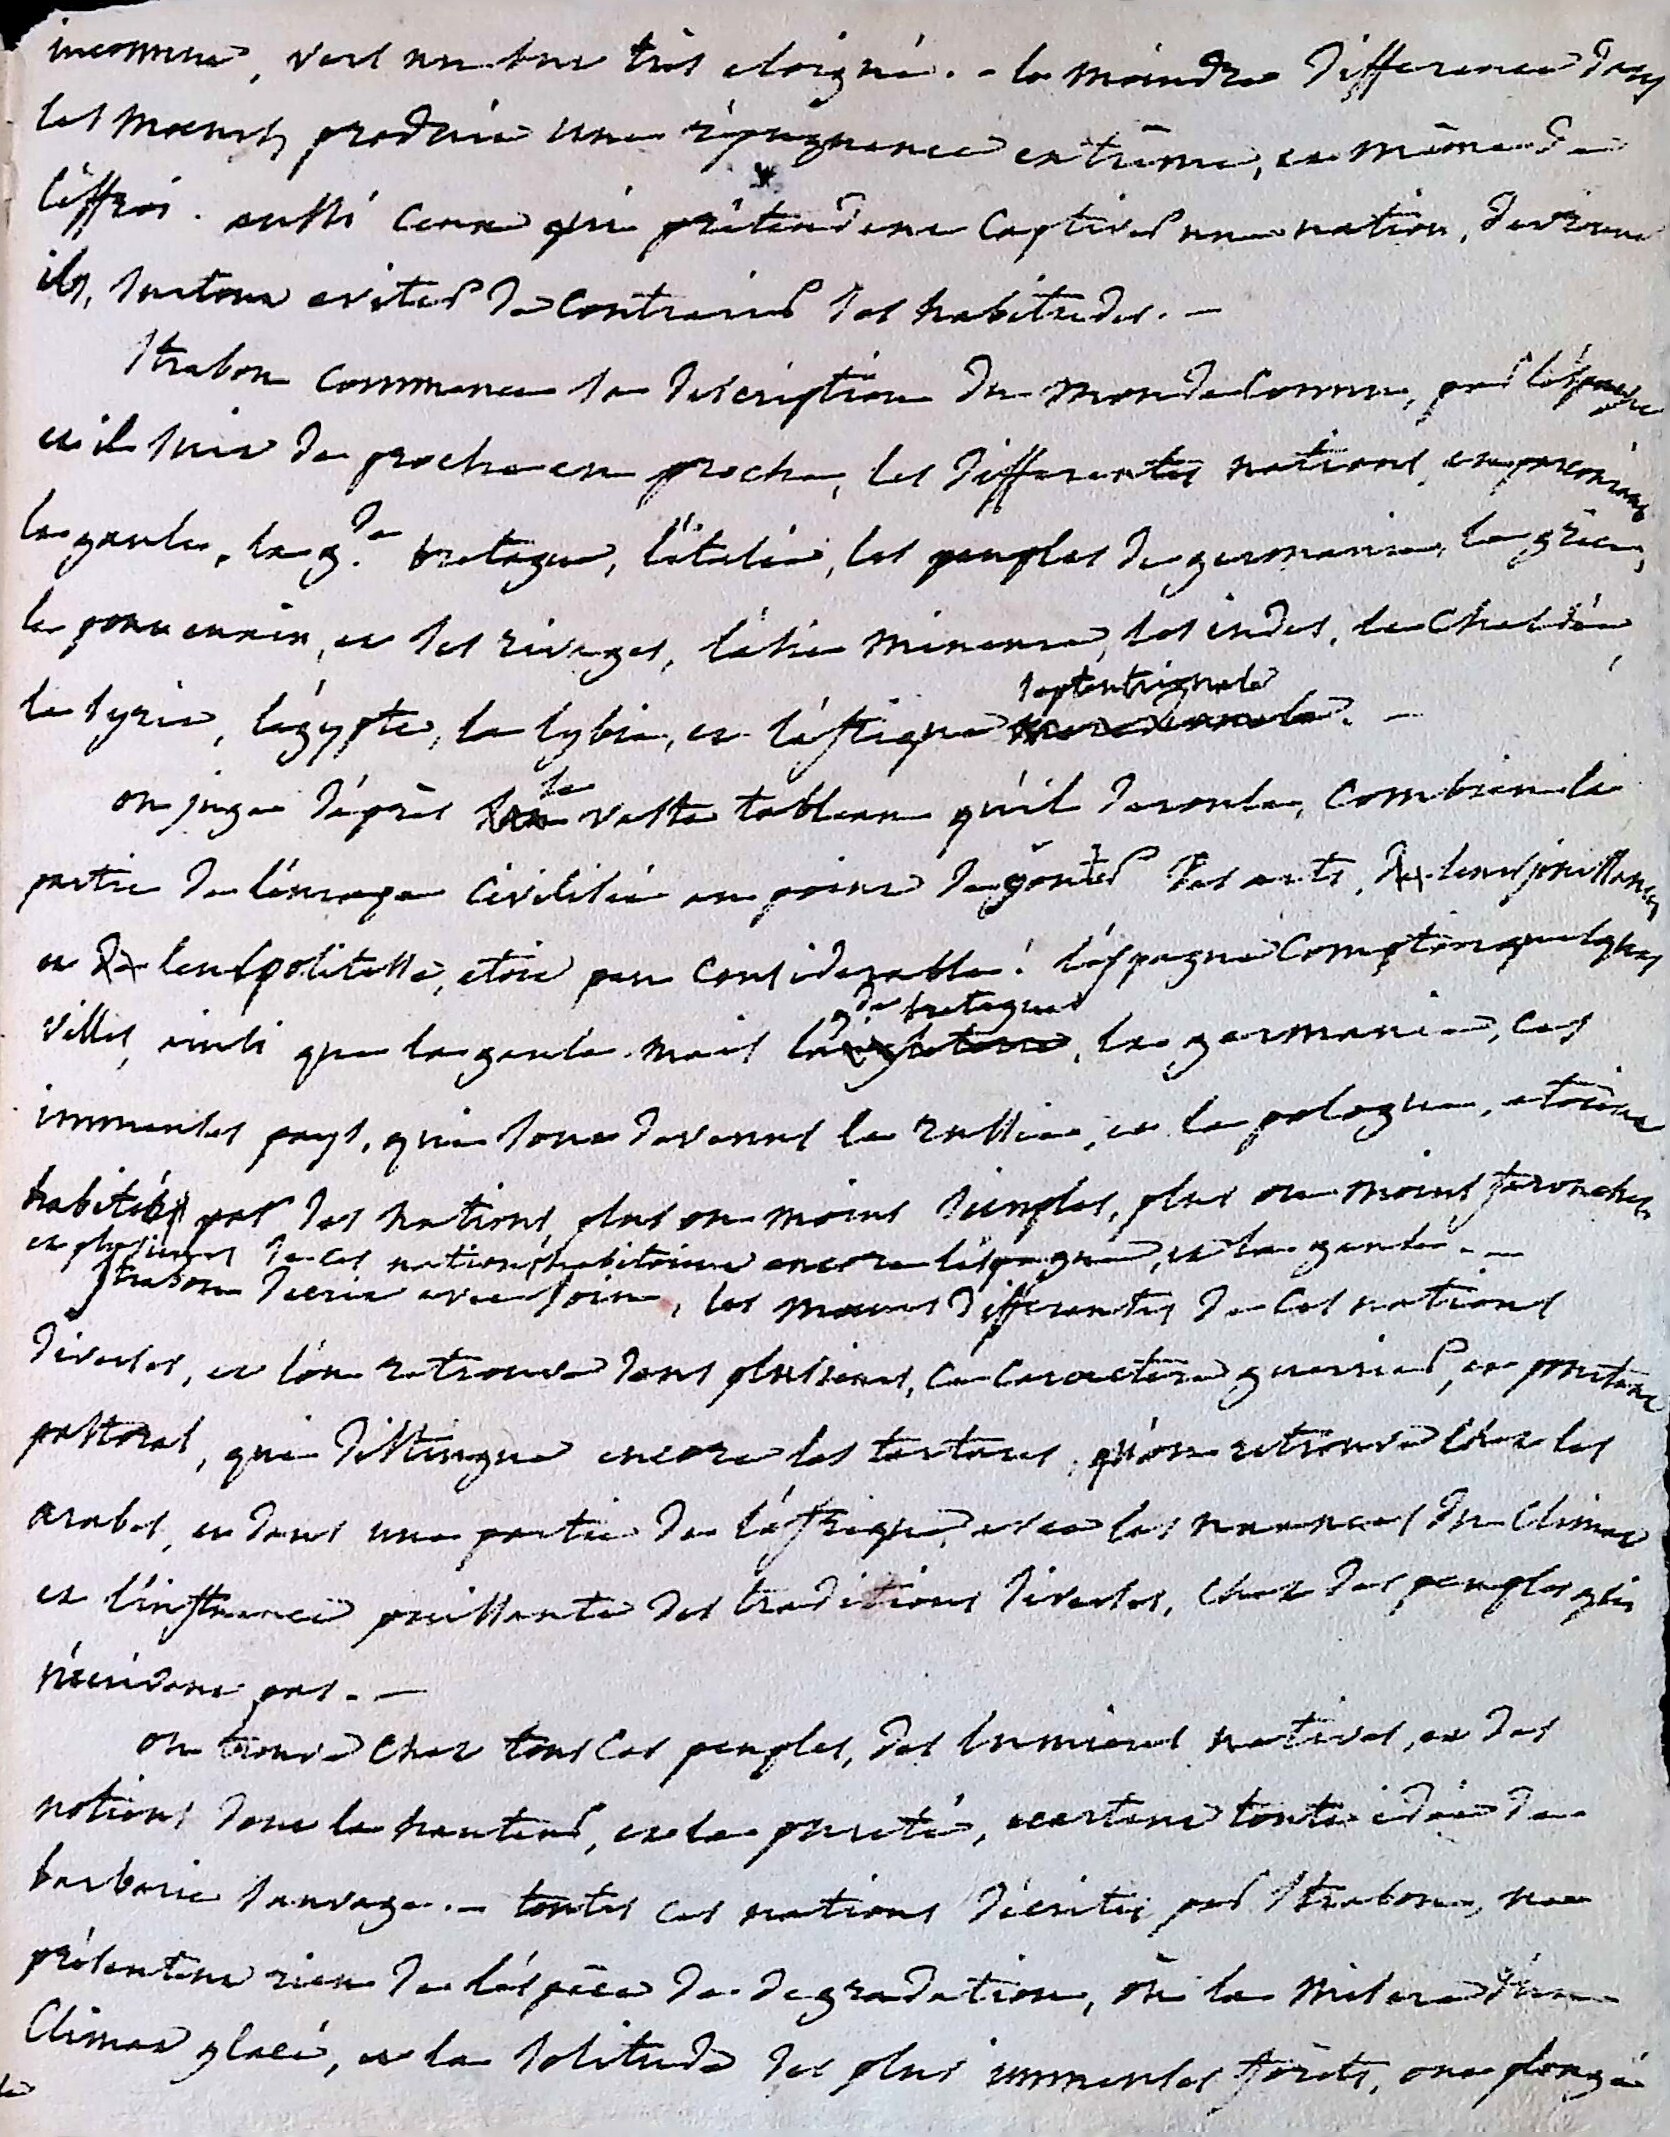 inconnue, vers un but très eloigné. - la moindre difference dans
les moeurs, produit une répugnance extrême, et même de
l'éffroi. aussi ceux qui prétendent captiver une nation, devroient
ils, surtout eviter de contrarier ses habitudes. -
Strabon commence sa description du monde connu, par l'éspagne
et il suit de proche en proche, les differentes nations, en parcourant
la gaule, la g.de bretagne, l'italie, les peuples de germanie, la grèce,
le pont euxin, et ses rivages, l'asie mineure, les indes, la chaldée,
la syrie, l'égypte, la lybie, et l'áfrique septentrionale. -
on juge d'áprès le vaste tableau qu'il deroule, combien la
partie de l'éurope civilisée au point de goûter des arts, leurs jouissances
et leur politesse, etoit peu considerable! l'éspagne comptoit quelques
villes, ainsi que la gaule mais la g.de bretagne, la germanie, ces
immenses pays, qui sont devenus la russie, et la pologne, etoient
habités par des nations, plus ou moins simples, plus ou moins farouches,
et plusieurs de ces nations habitoient encore l'éspagne, et la gaule. -
Strabon decrit avec soin, les moeurs differentes de ces nations
diverses, et l'on retrouve dans plusieurs, ce caractere guerrier, et pourtant
pastoral, qui distingue encore les tartares, qu'on retrouve chez les
arabes, et dans une partie de l'áfrique, avec les nuances du climat
et l'influence puissante des traditions diverses, chez des peuples qui
n'écrivent pas. -
on trouve chez tous ces peuples, des lumieres natives, et des
notions dont la hauteur, et la pureté, ecartent toute idée de
barbarie sauvage. - toutes ces nations décrites par Strabon, ne
présentent rien de l'éspèce de degradation, où la misere d'un
climat glacé, et la solitude des plus immenses forêts, ont plongé